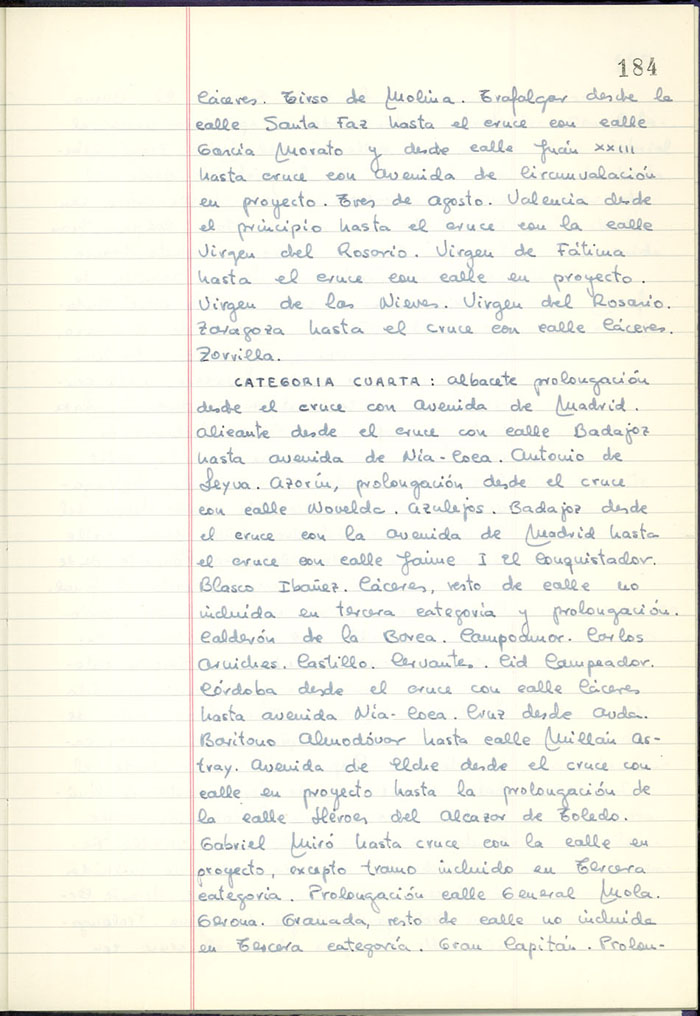 184
Cáceres. Tirso de Molina. Trafalgar desde la
calle Santa Faz hasta el cruce con calle
García Morato y desde calle Juán XXIII
hasta cruce con avenida de Circunvalación
en proyecto. Tres de Agosto. Valencia desde
el principio hasta el cruce con la calle
Virgen del Rosario. Virgen de Fátima
hasta el cruce con calle en proyecto.
Virgen de las Nieves. Virgen del Rosario.
Zaragoza hasta el cruce con calle Cáceres.
Zorrilla.
CATEGORIA CUARTA: Albacete prolongación
desde el cruce con Avenida de Madrid.
Alicante desde el cruce con calle Badajoz
hasta avenida de Nía-Coca. Antonio de
Leyva. Azorín, prolongación desde el cruce
con calle Novelda. Azulejos. Badajoz desde
el cruce con la avenida de Madrid hasta
el cruce con calle Jaime I El Conquistador.
Blasco Ibañez. Cáceres, resto de calle no
incluida en tercera categoría y prolongación.
Calderón de la Barca. Campoamor. Carlos
Arniches. Castillo. Cervantes. Cid Campeador.
Córdoba desde el cruce con calle Cáceres
hasta avenida Nía-Coca. Cruz desde Avda.
Barítono Almodóvar hasta calle Millán As-
tray. Avenida de Elche desde el cruce con
calle en proyecto hasta la prolongación de
la calle Héroes del Alcazar de Toledo.
Gabriel Miró hasta cruce con la calle en
proyecto, excepto tramo incluido en Tercera
categoría. Prolongación calle General Mola.
Gerona. Granada, resto de calle no incluida
en Tercera categoría. Gran Capitán. Prolon-